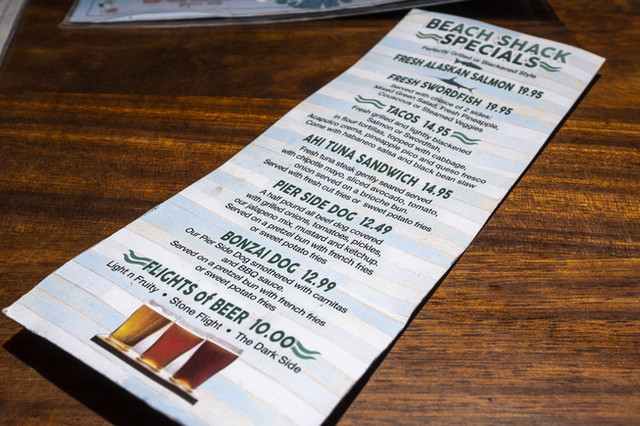 BEACH SHACK
SPECIALS
Perfectly Grilled or Blackened Style
FRESH ALASKAN SALMON 19.95
FRESH SWORDFISH 19.95
Served with choice of 2 sides:
Mixed Green Salad, Fresh Pineapple,
Couscous or Steamed Veggies
TACOS 14.95
Fresh grilled and lightly blackened
Salmon or Swordfish.
in flour tortillas, topped with cabbage,
Acapulco crema, pineapple pico and queso fresco
Come with habanero salsa and black bean slaw
AHI TUNA SANDWICH 14.95
Fresh tuna steak gently seared served
with chipotle mayo, sliced avocado, tomato,
onion served on a brioche bun.
Served with fresh cut fries or sweet potato fries
PIER SIDE DOG 12.49
A half pound all beef dog covered
with grilled onions, tomatoes, pickles,
our jalapeno mix, mustard and ketchup.
Served on a pretzel bun with french fries
or sweet potato fries
BONZAI DOG 12.99
Our Pier Side Dog smothered with carnitas
and BBQ sauce.
Served on a pretzel bun with french fries
or sweet potato fries
FLIGHTS of BEER 10.00
Light n Fruity • Stone Flight • The Dark Side